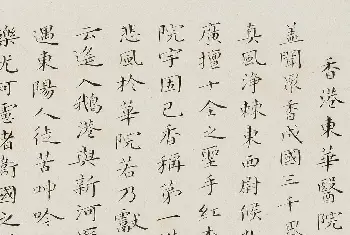 香港東華醫院
蓋聞眾香成國三千
真風淨棘東西尉候
廣擅十全之聖手紅
院宇固已香稱第一
悲風於華院若乃獻
云遙入鵝港與新河
遇東陽人徒苦呻吟
樂尤可處者衛國之